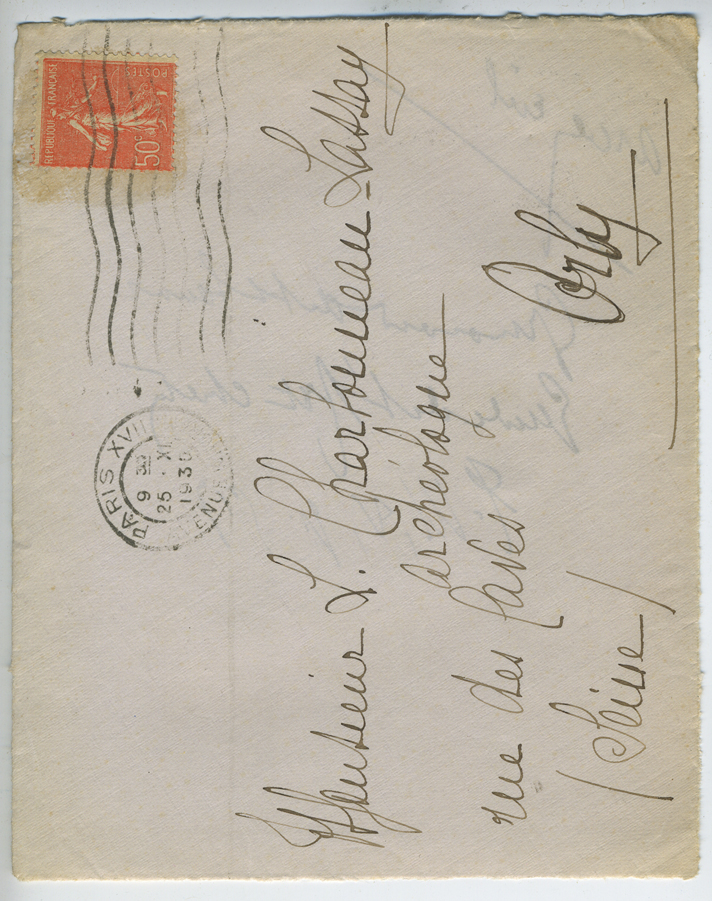 RÉPUBLIQUE FRANÇAISE
POSTES
50c
PARIS XVII
9 30
25 · XI
1930
Monsieur L. Charbonneau-Lassay
Archéologue
rue des Caves
Orly
(Seine)